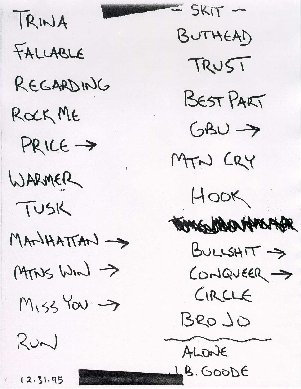 TRINA
FALLABLE
REGARDING
ROCK ME
PRICE →
WARMER
TUSK
MANHATTAN →
MTNS WIN →
MISS YOU →
RUN
12.31.95
- SKIT -
BUTHEAD
TRUST
BEST PART
GBU →
MTN CRY
HOOK
BULLSHIT →
CONQUEER →
CIRCLE
BRO JO
ALONE
J.B. GOODE